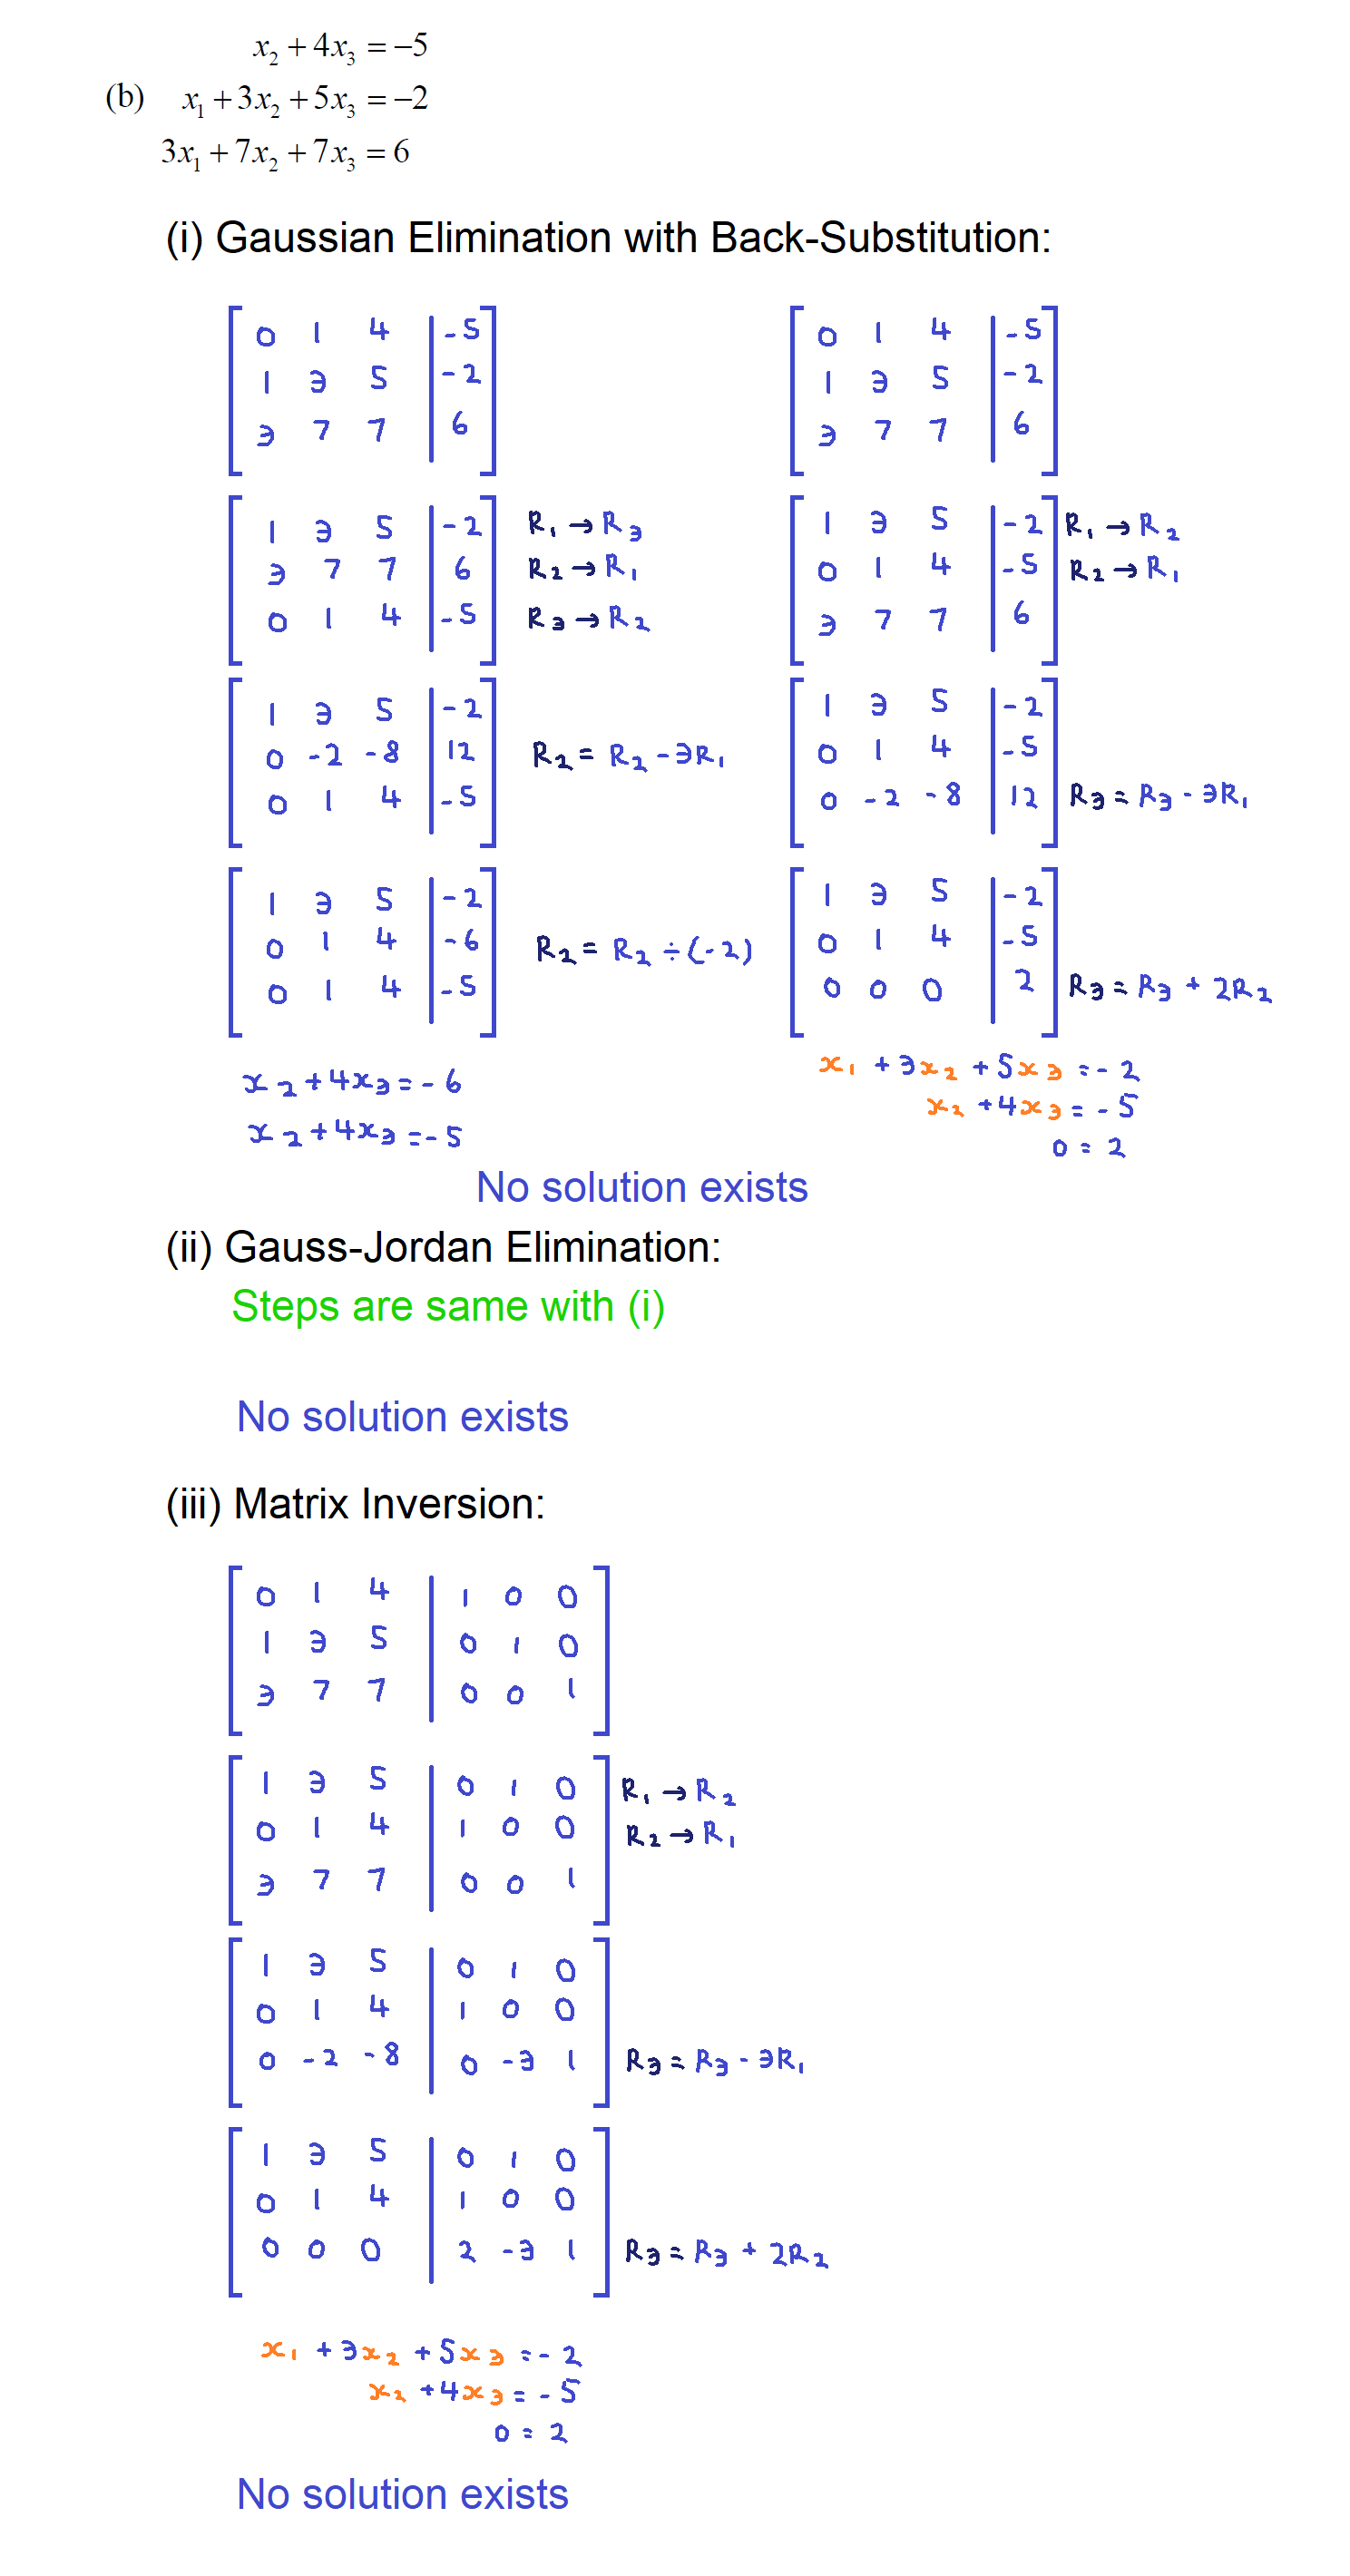 x₂ + 4x₃ = −5
(b) x₁ + 3x₂ + 5x₃ = −2
3x₁ + 7x₂ + 7x₃ = 6
(i) Gaussian Elimination with Back-Substitution:
0 1 4 | -5
1 3 5 | -2
3 7 7 | 6
1 3 5 | -2 R₁ → R₃
3 7 7 | 6 R₂ → R₁
0 1 4 | -5 R₃ → R₂
1 3 5 | -2
0 -2 -8 | 12 R₂ = R₂ - 3R₁
0 1 4 | -5
1 3 5 | -2
0 1 4 | -6 R₂ = R₂ ÷ (-2)
0 1 4 | -5
x₂ + 4x₃ = -6
x₂ + 4x₃ = -5
0 1 4 | -5
1 3 5 | -2
3 7 7 | 6
1 3 5 | -2 R₁ → R₂
0 1 4 | -5 R₂ → R₁
3 7 7 | 6
1 3 5 | -2
0 1 4 | -5
0 -2 -8 | 12 R₃ = R₃ - 3R₁
1 3 5 | -2
0 1 4 | -5
0 0 0 | 2 R₃ = R₃ + 2R₂
x₁ + 3x₂ + 5x₃ = -2
x₂ + 4x₃ = -5
0 = 2
No solution exists
(ii) Gauss-Jordan Elimination:
Steps are same with (i)
No solution exists
(iii) Matrix Inversion:
0 1 4 | 1 0 0
1 3 5 | 0 1 0
3 7 7 | 0 0 1
1 3 5 | 0 1 0 R₁ → R₂
0 1 4 | 1 0 0 R₂ → R₁
3 7 7 | 0 0 1
1 3 5 | 0 1 0
0 1 4 | 1 0 0
0 -2 -8 | 0 -3 1 R₃ = R₃ - 3R₁
1 3 5 | 0 1 0
0 1 4 | 1 0 0
0 0 0 | 2 -3 1 R₃ = R₃ + 2R₂
x₁ + 3x₂ + 5x₃ = -2
x₂ + 4x₃ = -5
0 = 2
No solution exists